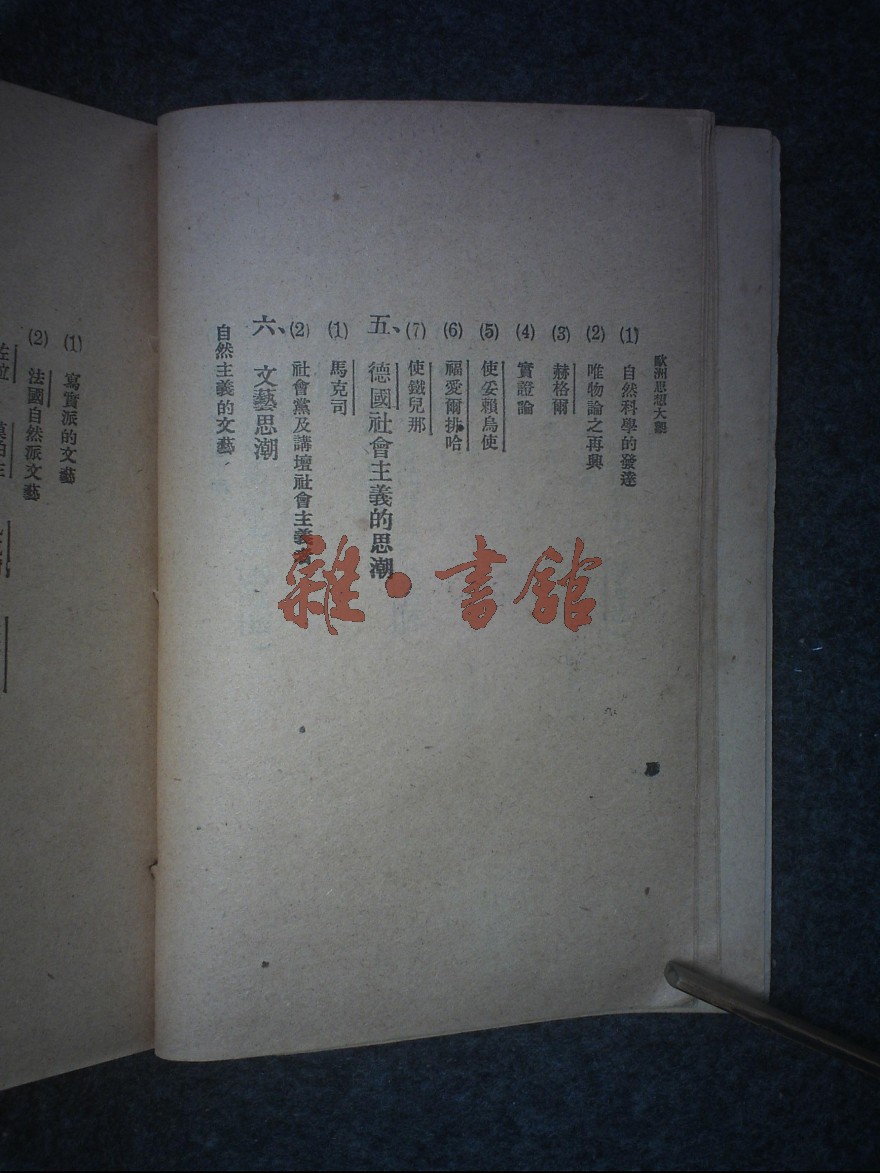 歐洲思想大觀
(1) 自然科學的發達
(2) 唯物論之再興
(3) 赫格爾
(4) 實證論
(5) 使妥賴烏使
(6) 福愛爾排哈
(7) 使鐵兒那
五、德國社會主義的思潮
(1) 馬克司
(2) 社會黨及講壇社會主義者
六、文藝思潮
自然主義的文藝
(1) 寫實派的文藝
(2) 法國自然派文藝
雜·書館